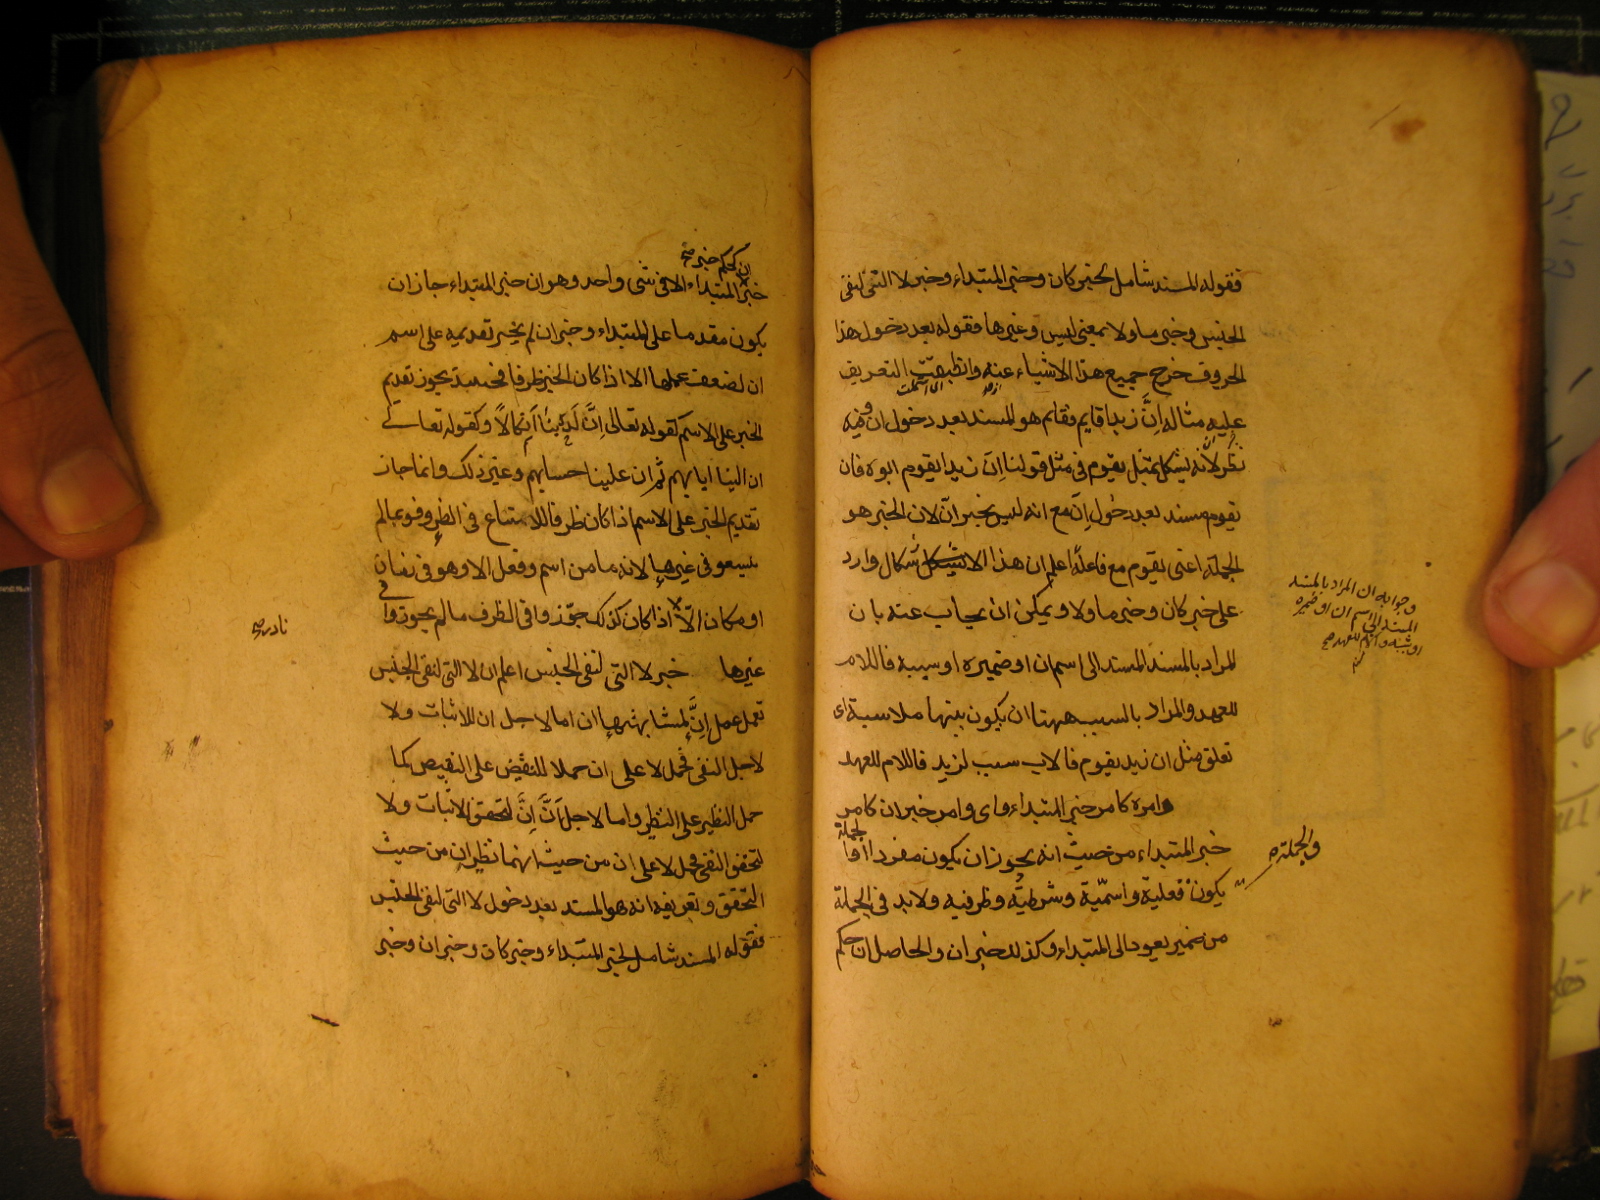 فقوله المسند شامل لخبر كان وخبر المبتداء وخبر لا التى لنفى
الجنس وخبر ما ولا بمعنى ليس وغيرها فقوله بعد دخول هذا
الحروف خرج جميع هذا الاشياء عنه وانطبقت التعريف
عليه مثاله اِنَّ زيدا قايم فقايم هو المسند بعد دخول ان وفيه
نظر لانه يشكل بمثل يقوم فى مثل قولنا اِنَّ زيدا يقوم ابوه فان
يقوم مسند بعد دخول اِنَّ مع انه ليس بخبر انّ لان الخبر هو
الجملة اعنى يقوم مع فاعله اعلم ان هذا الاشكال وارد
على خبر كان وخبر ما ولا ويمكن ان يجاب عنه بان
المراد بالمسند المسند الى اسم ان او ضميره او سببه فاللام
للعهد والمراد بالسبب ههنا ان يكون بينها ملابسة اى
تعلق مثل ان زيد يقوم فالاب سبب لزيد فاللام للعهد
وامره كامر خبر المبتداء واى وامر خبر ان كامر
خبر المبتداء من حيث انه يجوز ان يكون مفردا او
يكون فعلية واسميّة وشرطية وظرفيه ولابد فى الجملة
من ضمير يعود الى المبتداء وكذلك خبر ان والحاصل ان حكم
وجوابه ان المراد بالمسند
المسند الى اسم ان او ضميره
والجملة صح
ان كحكم خبر صح
خبر المبتداء الا فى شى واحد وهو ان خبر المبتداء جاز ان
يكون مقدما على المبتداء وخبر ان لم يخبر تقديمه على اسم
ان لضعف عملها الا اذا كان الخبر ظرفا فحينئذ يجوز تقديم
الخبر على الاسم كقوله تعالى اِنَّ لَدَيْنَا اَنْكَالًا وكقوله تعالى
ان الينا ايابهم ثم ان علينا حسابهم وغير ذلك وانما جاز
تقديم الخبر على الاسم اذا كان ظرفا للاتساع فى الظروف بما لم
يتسعو فى غيرها لانه ما من اسم وفعل الا وهو فى زمان
او مكان الّا اذا كان كذلك جوّزوا فى الظرف ما لم يجوزوا فى
غيرها خبر لا التى لنفى الجنس اعلم ان لا التى لنفى الجنس
تعمل عمل اِنَّ لمشابهتها ان اما لاجل ان للاثبات ولا
لاجل النفى فحمل لا على ان حملا للنقيض على النقيض كما
حمل النظير على النظير واما لاجل اَنَّ اِنَّ لتحقق الاثبات ولا
لتحقق النفى فحمل لا على ان من حيث انهما نظيران من حيث
التحقق وتعريفه انه هو المسند بعد دخول لا التى لنفى الجنس
فقوله المسند شامل لخبر المبتداء وخبر كان وخبر ان وخبر